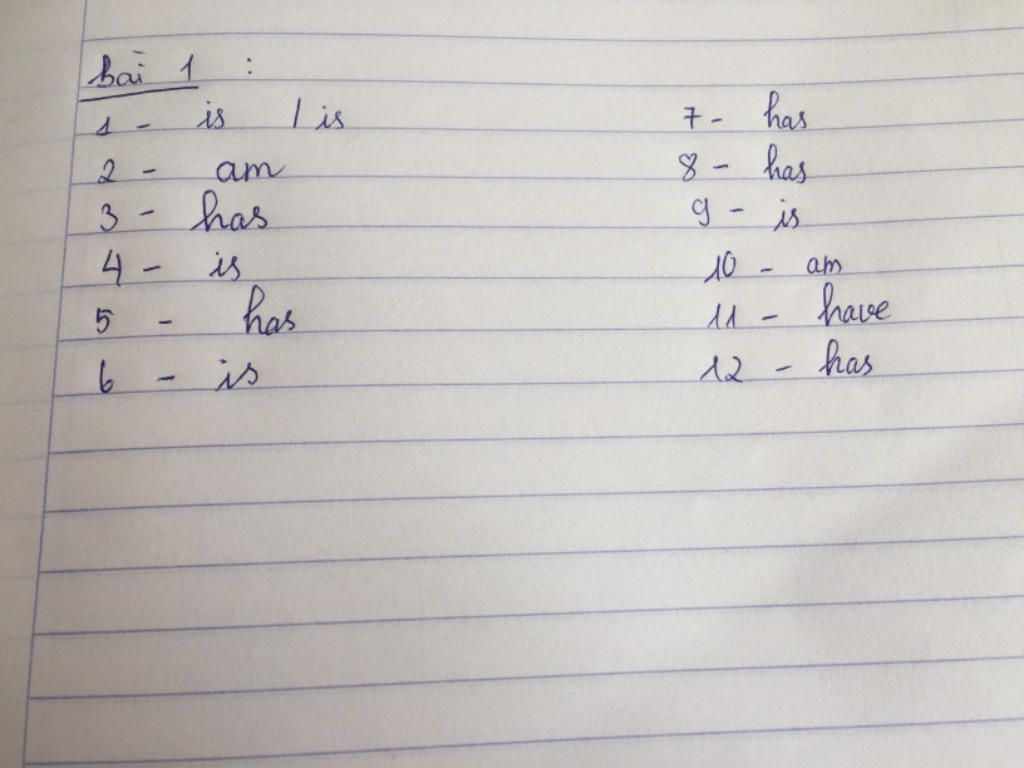 bài 1 :
1 - is / is
2 - am
3 - has
4 - is
5 - has
6 - is
7 - has
8 - has
9 - is
10 - am
11 - have
12 - has